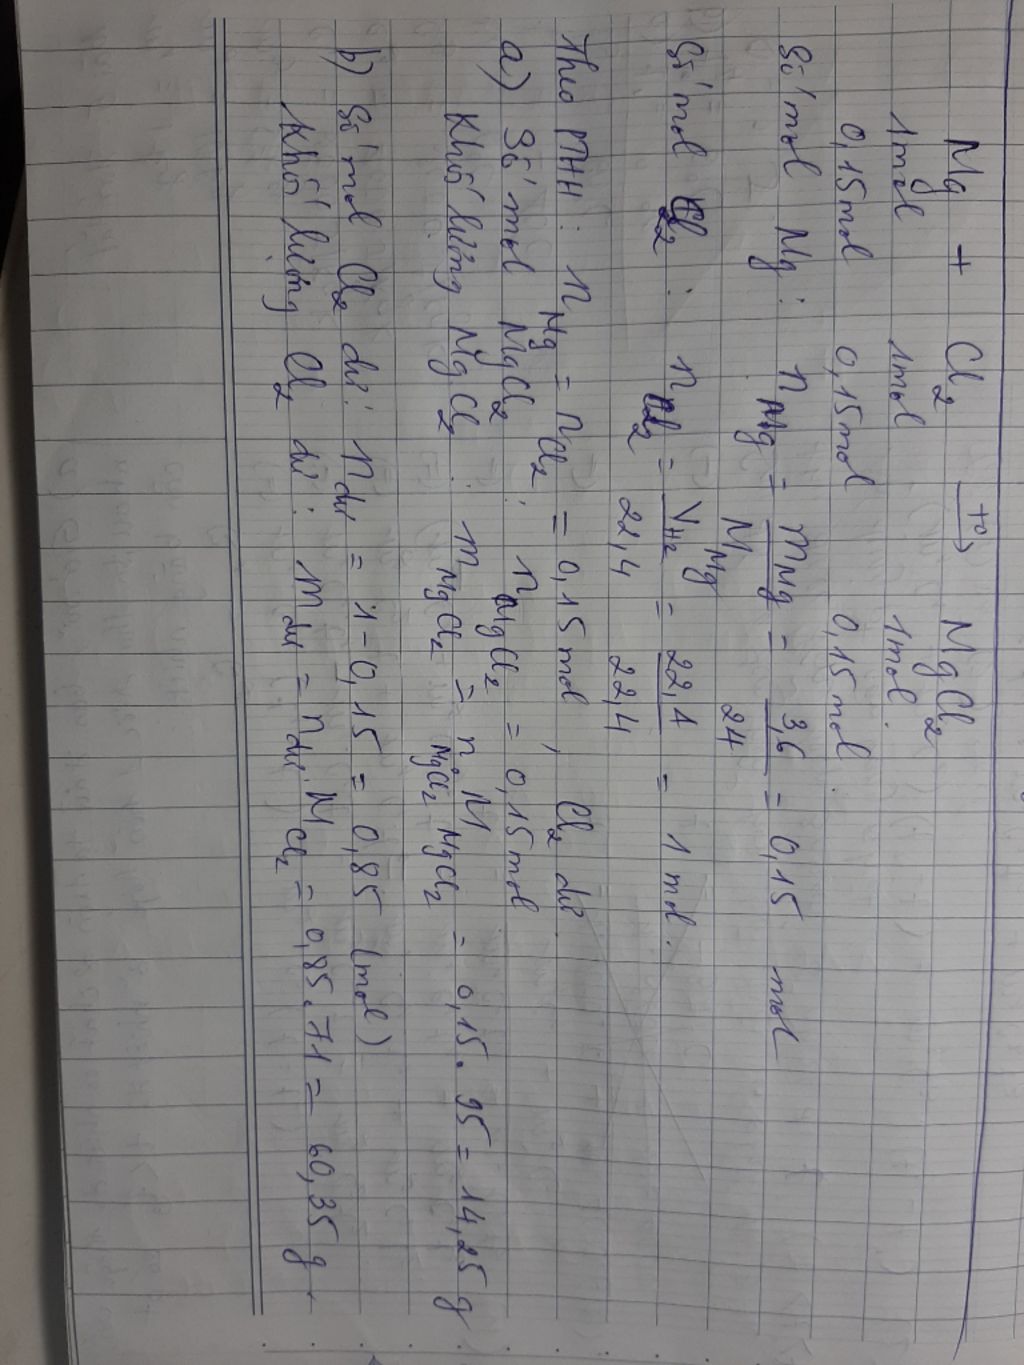 Mg + Cl2 t° → MgCl2
1mol 1mol 1mol.
0,15mol 0,15mol 0,15mol.
Số mol Mg: nMg = mMg/MMg = 3,6/24 = 0,15 mol
Số mol Cl2: nCl2 = VH2/22,4 = 22,4/22,4 = 1 mol.
Theo PTHH: nMg = nCl2 = 0,15 mol, Cl2 dư.
a) Số mol MgCl2: nMgCl2 = 0,15mol
Khối lượng MgCl2: mMgCl2 = nMgCl2 MMgCl2 = 0,15. 95 = 14,25 g
b) Số mol Cl2 dư: ndư = 1 - 0,15 = 0,85 (mol)
Khối lượng Cl2 dư: mdư = ndư. MCl2 = 0,85. 71 = 60,35 g.